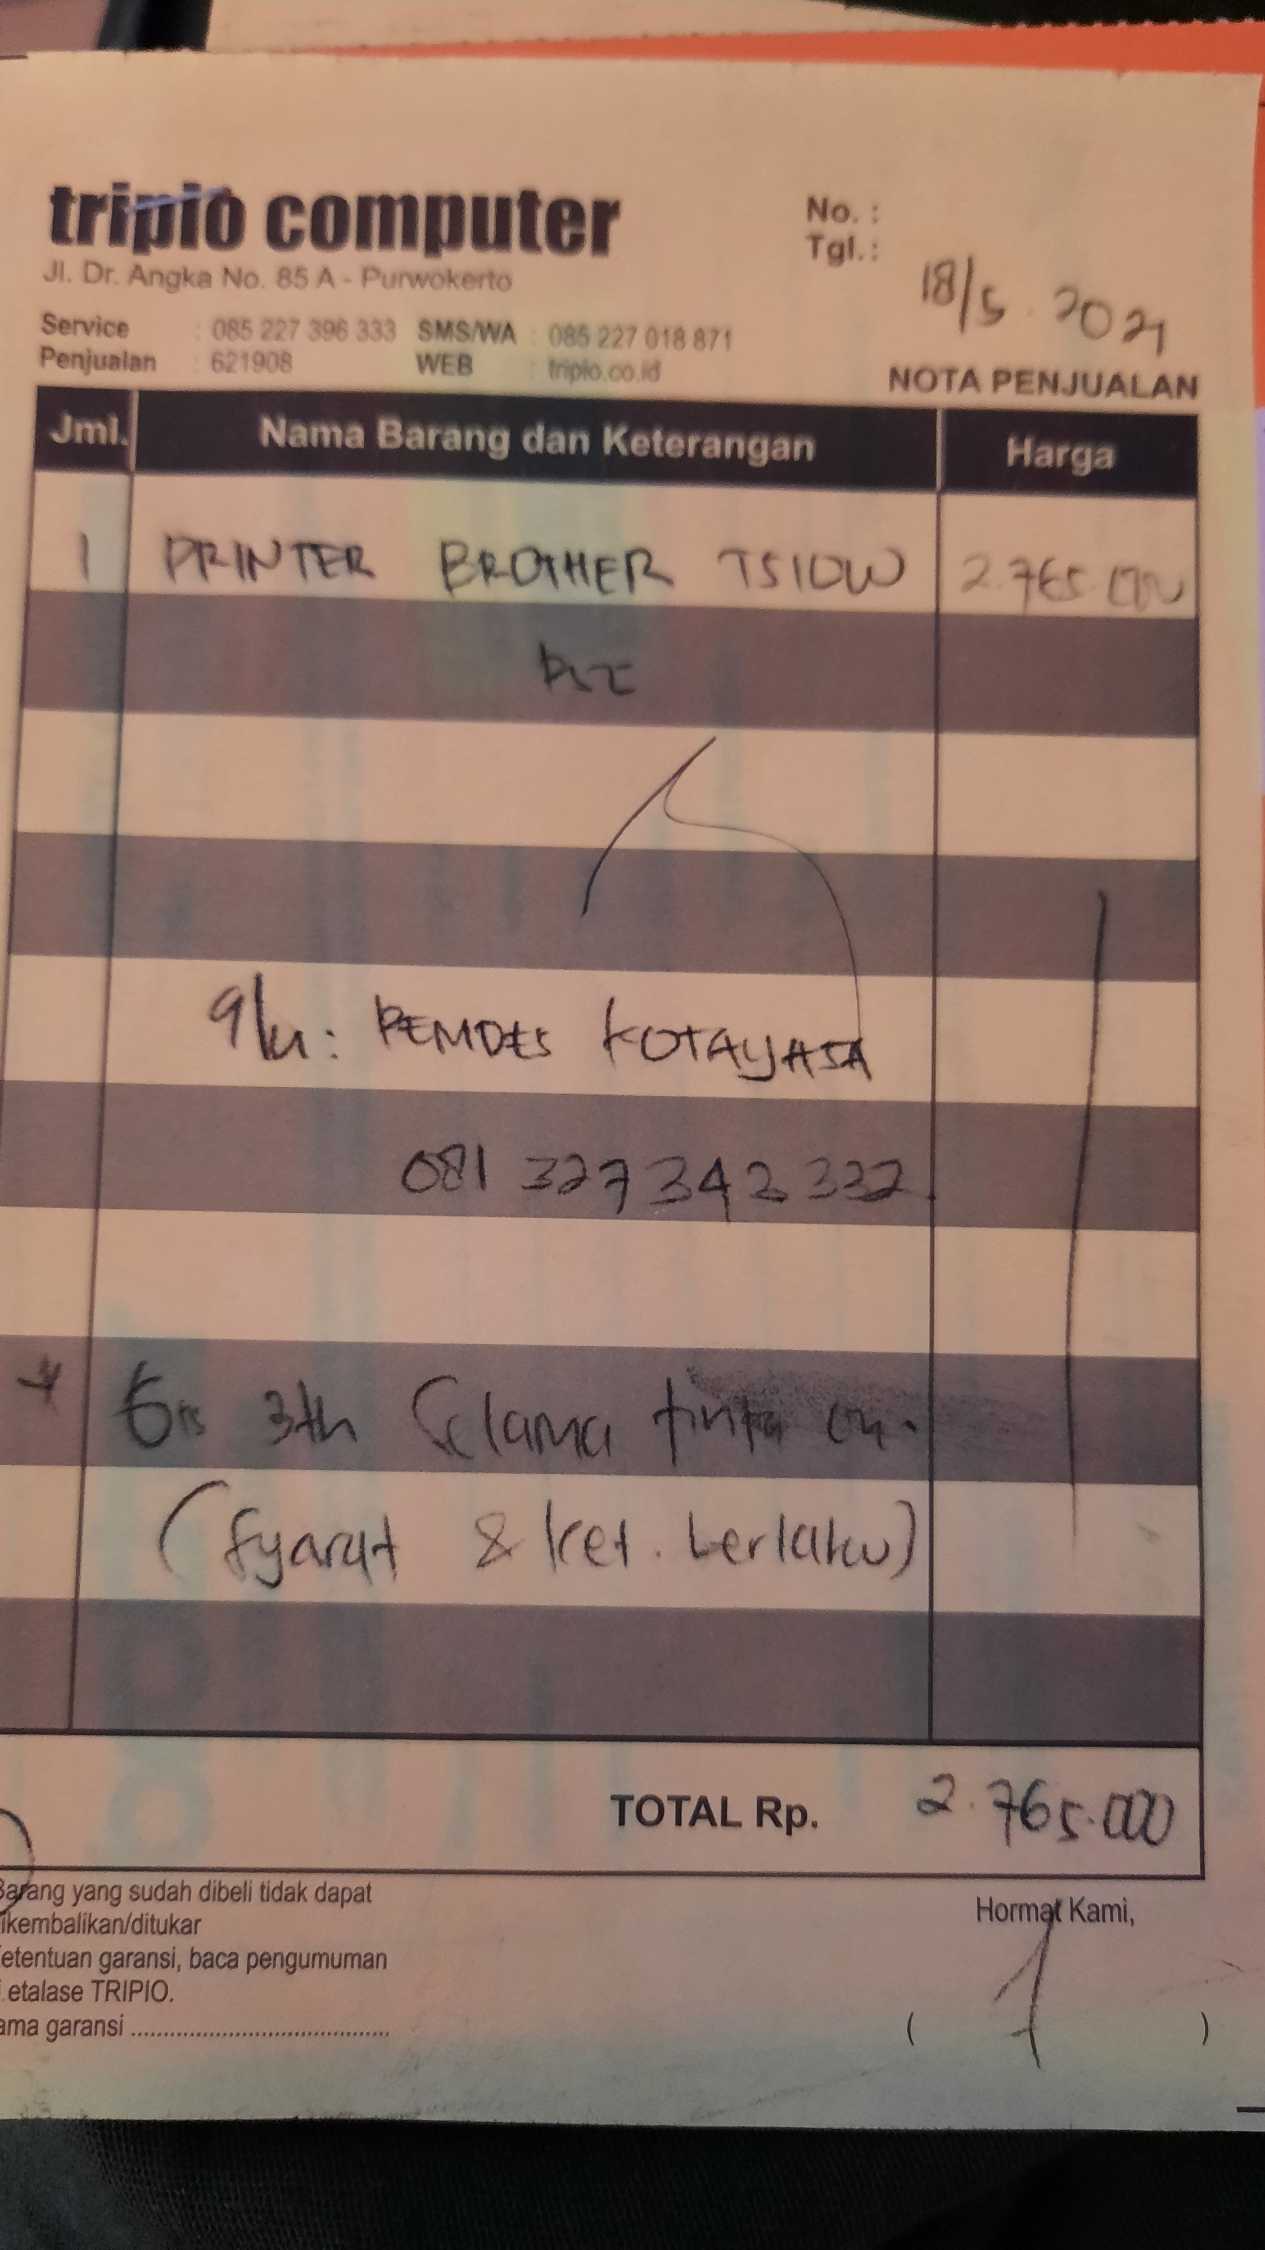 tripio computer
Jl. Dr. Angka No. 85 A - Purwokerto
No. :
Tgl. : 18/5.2021
Service : 085 227 396 333 SMS/WA : 085 227 018 871
Penjualan : 621908 WEB : tripio.co.id
NOTA PENJUALAN
Jml. Nama Barang dan Keterangan Harga
1 PRINTER BROTHER T510W 2.765.000
: PEMDES KOTAYASA
081 327 342 332
3th Selama tinta ori.
(Syarat & ket. berlaku)
TOTAL Rp. 2.765.000
Barang yang sudah dibeli tidak dapat
ikembalikan/ditukar
etentuan garansi, baca pengumuman
.etalase TRIPIO.
ama garansi ..........................................
Hormat Kami,
( )